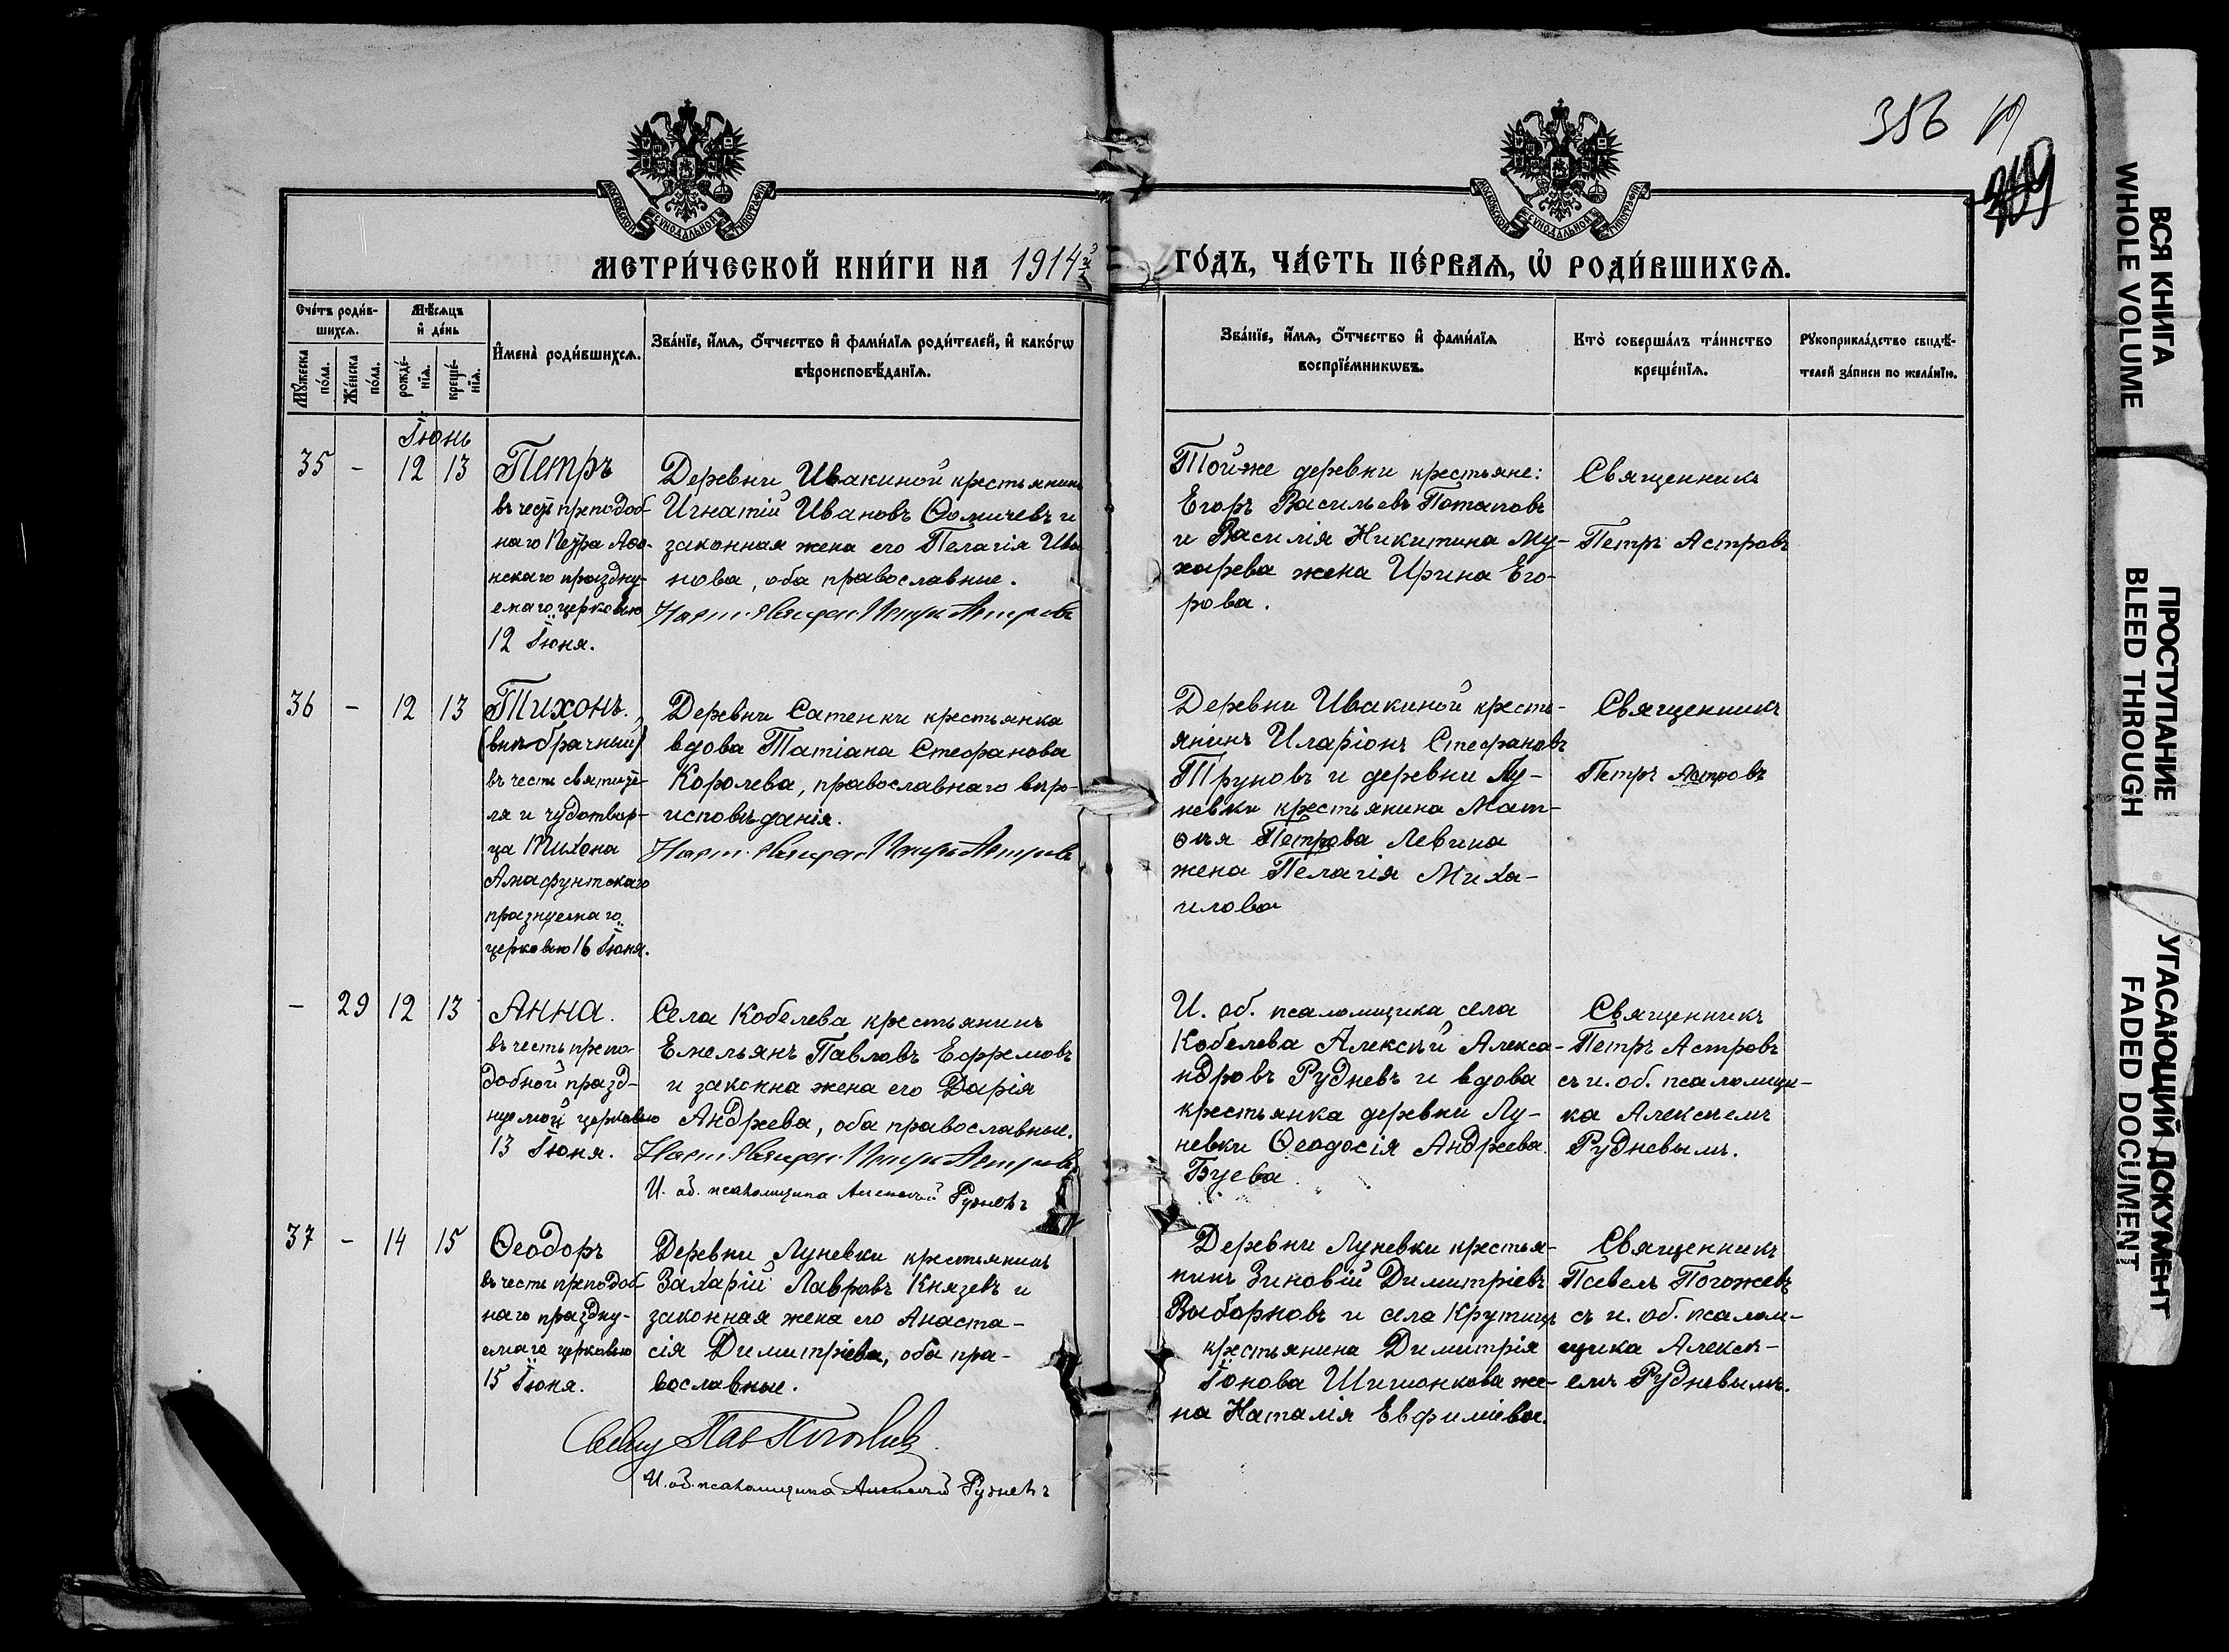 356
МОСКОВСКОЙ СѴНОДАЛЬНОЙ ТИПОГРАФІИ
МОСКОВСКОЙ СѴНОДАЛЬНОЙ ТИПОГРАФІИ
МЕТРИ́ЧЕСКОЙ КНИ́ГИ НА 1914й
ГО́ДЪ, ЧА́СТЬ ПЕ́РВАѦ, Ѡ҆ РОДИ́ВШИХСѦ.
Сче́тъ роди́в-
шихсѧ.
Мꙋ́жеска по́ла.
Же́нска по́ла.
Мѣ́сѧцъ
и҆ де́нь
рожде́-
нїѧ.
креще́-
нїѧ.
И҆мена̀ роди́вшихсѧ.
Зва́нїе, и҆́мѧ, ѻ҆́тчество и҆ фами́лїѧ роди́телей, и҆ како́гѡ
вѣроисповѣ́данїѧ.
Зва́нїе, и҆́мѧ, ѻ҆́тчество и҆ фами́лїѧ
воспрїе́мникѡвъ.
Кто̀ соверша́лъ та́инство
креще́нїѧ.
Рꙋкоприкла́дство свидѣ́-
телей за́писи по жела́нїю.
Іюнь
35 - 12 13
Петръ
въ честь преподоб-
наго Петра Аѳо-
нскаго праздну-
емаго церковью
12 Іюня.
Деревни Ивакиной крестьянинъ
Игнатій Ивановъ Ѳомичевъ и
законная жена его Пелагія Ива
нова, оба православные.
Наст. Священ. Петръ Астровъ
Той-же деревни крестьяне:
Егоръ Васильевъ Потаповъ
и Василія Никитина Му-
харева жена Ирина Его-
рова.
Священникъ
Петръ Астровъ
36 - 12 13
Тихонъ.
(внѣбрачный)
въ честь святите-
ля и чудотвор-
ца Тихона
Амафунтскаго
празнуемаго
церковью 16 Іюня.
Деревни Сатенки крестьянка
вдова Татіана Стефанова
Королева, православнаго вѣро-
исповѣданія.
Наст. Священ. Петръ Астровъ
Деревни Ивакиной кресть-
янинъ Иларіонъ Стефановъ
Труновъ и деревни Лу-
невки крестьянина Мат-
ѳѣя Петрова Левина
жена Пелагія Миха-
илова
Священникъ
Петръ Астровъ
- 29 12 13
Анна.
въ честь препо-
добной празд-
нуемой церковью
13 Іюня.
Села Кобелева крестьянинъ
Емельянъ Павловъ Ефремовъ
и закокна жена его Дарія
Андреева, оба православные.
Наст. Священ. Петръ Астровъ
И. об. псаломщика Алексѣй Рудневъ
И. об. псаломщика села
Кобелева Алексѣй Алекса-
ндровъ Рудневъ и вдова
крестьянка деревни Лу-
невки Ѳеодосія Андреева
Буева.
Священникъ
Петръ Астровъ
съ и. об. псаломщи-
ка Алексѣемъ
Рудневымъ.
37 - 14 15
Ѳеодоръ
въ честь преподоб
наго праздну-
емаго церковью
15 Іюня.
Деревни Луневки крестьянинъ
Захарій Лавровъ Князевъ и
законная жена его Анаста-
сія Димитріева, оба пра-
вославные.
Свящ Пав Погожевъ.
И. об. псаломщика Алексѣй Рудневъ
Деревни Луневки крестья-
нинъ Зиновій Димитріевъ
Выборновъ и села Крутицъ
крестьянина Димитрія
Іонова Шишонкова же-
на Наталія Евфиміева.
Священникъ
Павелъ Погожевъ
съ и. об. псалом-
щика Алексѣ-
емъ Рудневымъ.
ВСЯ КНИГА
WHOLE VOLUME
ПРОСТУПАНИЕ
BLEED THROUGH
УГАСАЮЩИЙ ДОКУМЕНТ
FADED DOCUMENT